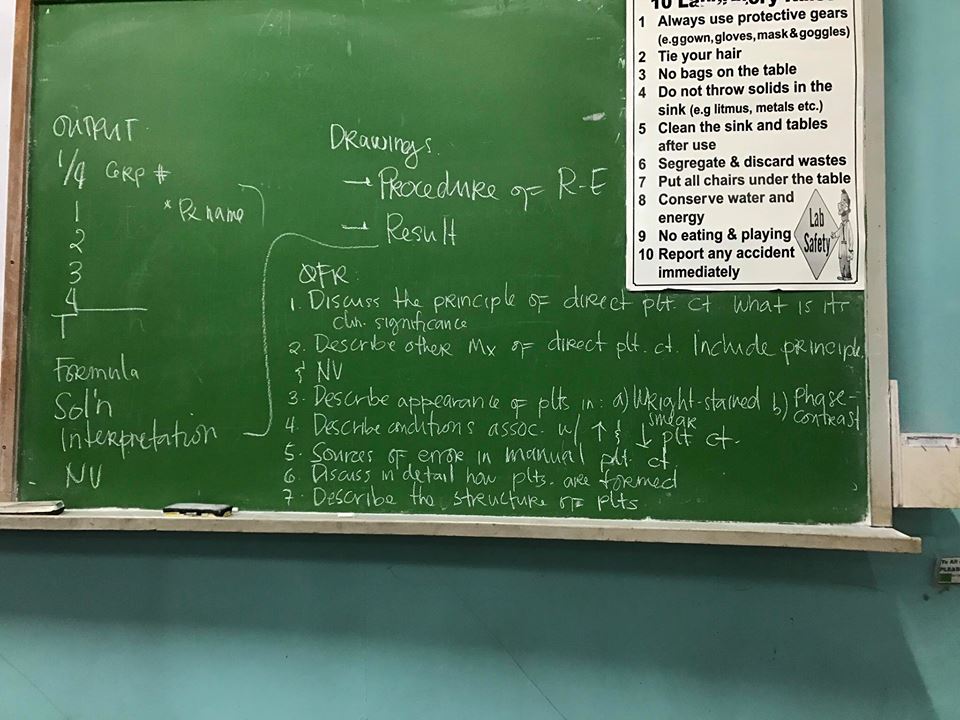 OUTPUT
1/4 GRP #
1
* Px name
2
3
4
T
Formula
Sol'n
Interpretation
NV
Drawings
→ Procedure of R-E
→ Result
QFR:
1. Discuss the principle of direct plt. ct. What is its
clin. significance
2. Describe other Mx of direct plt. ct. Include principle
& NV
3. Describe appearance of plts in: a) Wright-stained smear b) Phase-contrast
4. Describe conditions assoc. w/ ↑ & ↓ plt ct.
5. Sources of error in manual plt. ct
6. Discuss in detail how plts. are formed
7. Describe the structure of plts
1 Always use protective gears
(e.g gown, gloves, mask & goggles)
2 Tie your hair
3 No bags on the table
4 Do not throw solids in the
sink (e.g litmus, metals etc.)
5 Clean the sink and tables
after use
6 Segregate & discard wastes
7 Put all chairs under the table
8 Conserve water and
energy
9 No eating & playing
10 Report any accident
immediately
Lab
Safety